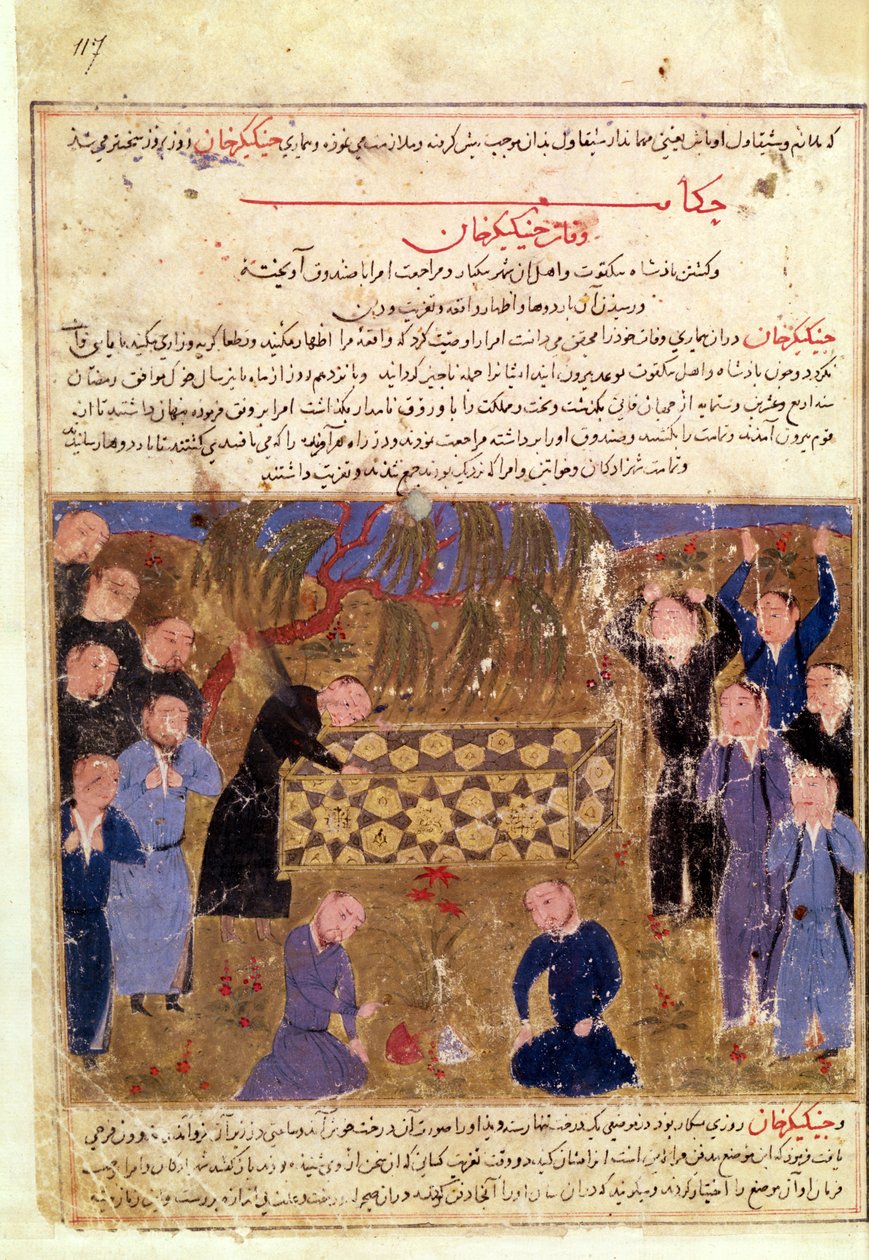 117
که ملازم و شیقاول اوباش یعنی مهماندار شیقاول بدان موجب پیش گرفته و ملازمت می نموذه و بیماری جینکیکزخان روز بروز سختتر می شذ
حکایت
وفات جینکیکزخان
و کشتن پاذشاه تنکقوت و اهل آن شهر بیکبار و مراجعت امرا با صندوق آویخته
و رسیذن آن باردوها و اظهار واقعه و تعزیت و دفن
جینکیکزخان در ان بیماری وفات خود را محقق می دانست امرا را وصیت کرد که واقعۀ مرا اظهار مکنید و قطعا گریه و زاری مکنید تا یاغی واقف
نگردد و چون پاذشاه و اهل تنکقوت بوعده بیرون آیند ایشانرا جمله ناچیز گردانید و پانزدهم روز از ماه پاییز سال خوک موافق رمضان
سنه اربع و عشرین و ستمایه از جهان فانی بگذشت و تخت و مملکت را با وروق نامدار بگذاشت امرا بر وفق فرموده پنهان داشتند تا آن
قوم بیرون آمدند و تمامت را بکشتند و صندوق او را برداشته مراجعت نمودند و در راه هر آفریذه را که می یافتند می کشتند تا باردوها رسانیدند
و تمامت شهزادکان و خواتین و امرا که نزدیک بودند جمع شدند و تعزیت داشتند
و جینکیکزخان روزی بشکار بود در موضعی یک درخت تنها رسته دید او را صورت آن درخت خوش آمد و ساعتی در زیر آن فرو آمد و ذوق و فرحی
یافت فرمود که این موضع مدفن مرا لایق است از نشان کنید در وقت تعزیت کسانی که آن سخن از وی شنیده بودند باز گفتند شهزادکان و امرا بموجب
فرمان او آن موضع را اختیار کردند و میگویند که در آن سال او را آنجا دفن کردند در آن صحرا درخت و علف بی اندازه برست